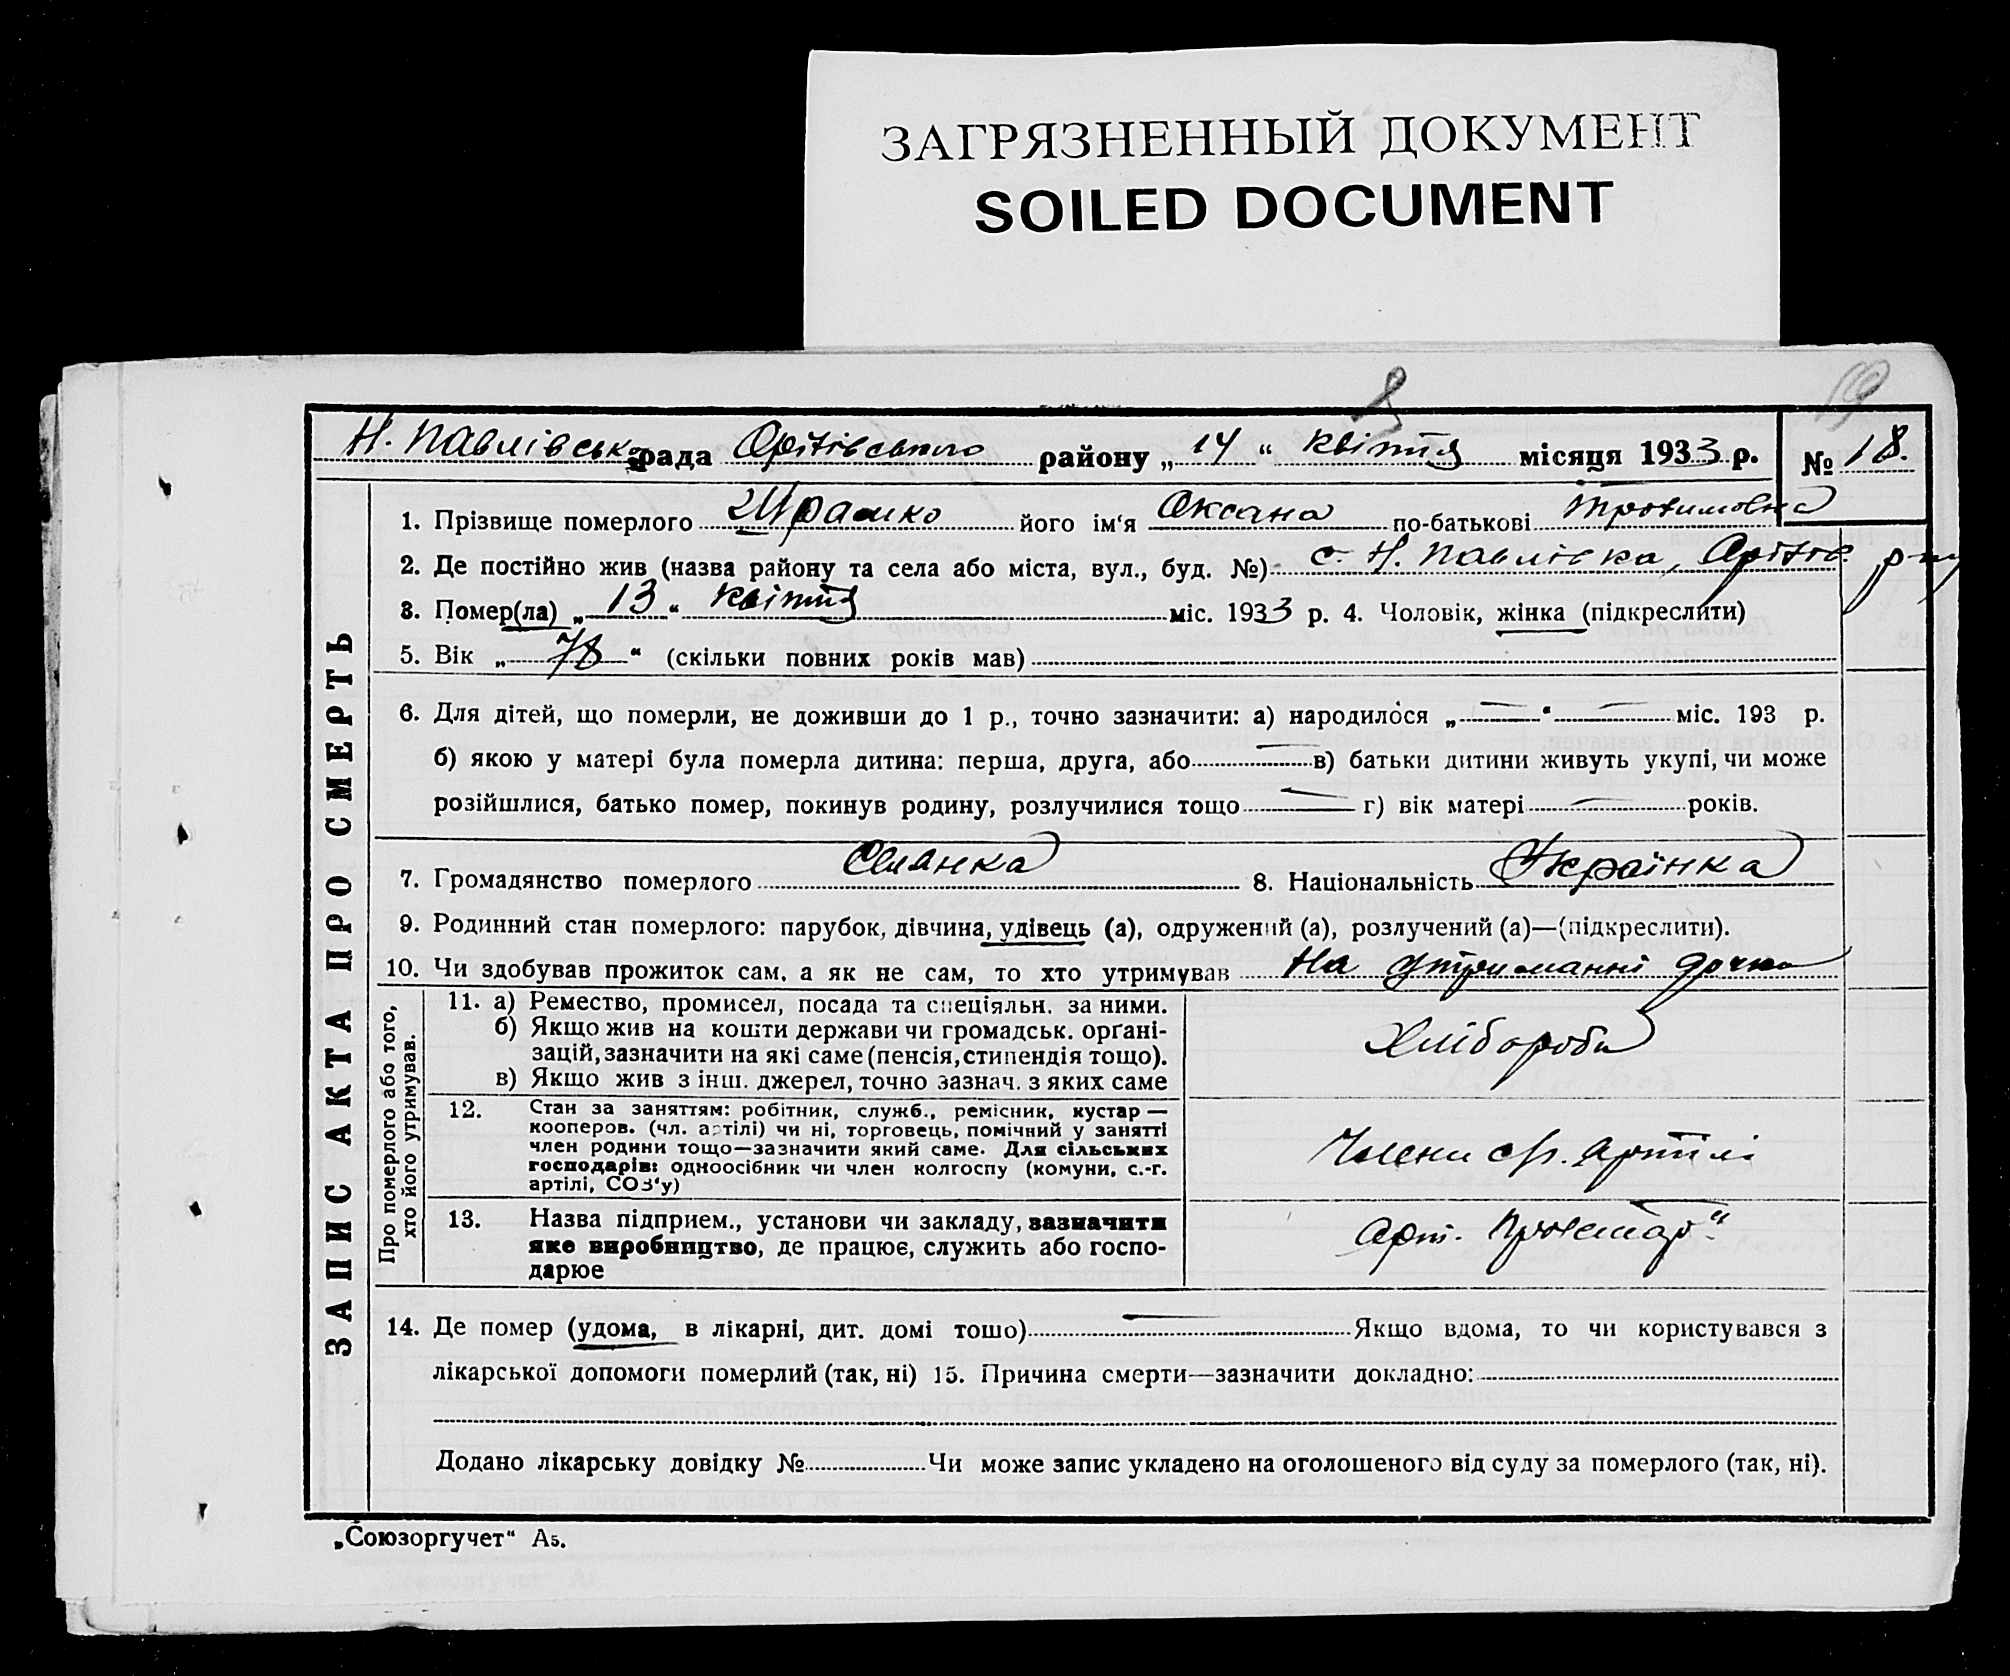 ЗАГРЯЗНЕННЫЙ ДОКУМЕНТ
SOILED DOCUMENT
19
Н. Павлівська рада району „14“ квітня місяця 1933 р. № 18.
ЗАПИС АКТА ПРО СМЕРТЬ
1. Прізвище померлого Шрамко його ім‘я Оксана по-батькові Трохимовна
2. Де постійно жив (назва району та села або міста, вул., буд. №) с. Н. Павлівка, р-ну
3. Помер(ла) „13“ квітня міс. 1933 р. 4. Чоловік, жінка (підкреслити)
5. Вік „78“ (скільки повних років мав)
6. Для дітей, що померли, не доживши до 1 р., точно зазначити: а) народилося „—“ — міс. 193 р.
б) якою у матері була померла дитина: перша, друга, або — в) батьки дитини живуть укупі, чи може
розійшлися, батько помер, покинув родину, розлучилися тощо — г) вік матері — років.
7. Громадянство померлого Селянка 8. Національність Українка
9. Родинний стан померлого: парубок, дівчина, удівець (а), одружений (а), розлучений (а)—(підкреслити).
10. Чи здобував прожиток сам, а як не сам, то хто утримував На утриманні дочки
Про померлого або того,
хто його утримував.
11. а) Ремество, промисел, посада та спеціяльн. за ними.
б) Якщо жив на кошти держави чи громадськ. орґані-
зацій, зазначити на які саме (пенсія, стипендія тощо).
в) Якщо жив з інш. джерел, точно зазнач. з яких саме
Хлібороби
12. Стан за заняттям: робітник, служб., ремісник, кустар —
кооперов. (чл. артілі) чи ні, торговець, помічний у занятті
член родини тощо—зазначити який саме. Для сільських
господарів: одноосібник чи член колгоспу (комуни, с.-г.
артілі, СОЗ‘у)
Члени с/г. артілі
13. Назва підприєм., установи чи закладу, зазначити
яке виробництво, де працює, служить або госпо-
дарює
Арт. Пролетар“
14. Де помер (удома, в лікарні, дит. домі тощо) — Якщо вдома, то чи користувався з
лікарської допомоги померлий (так, ні) 15. Причина смерти—зазначити докладно:
Додано лікарську довідку № Чи може запис укладено на оголошеного від суду за померлого (так, ні).
„Союзоргучет“ А5.